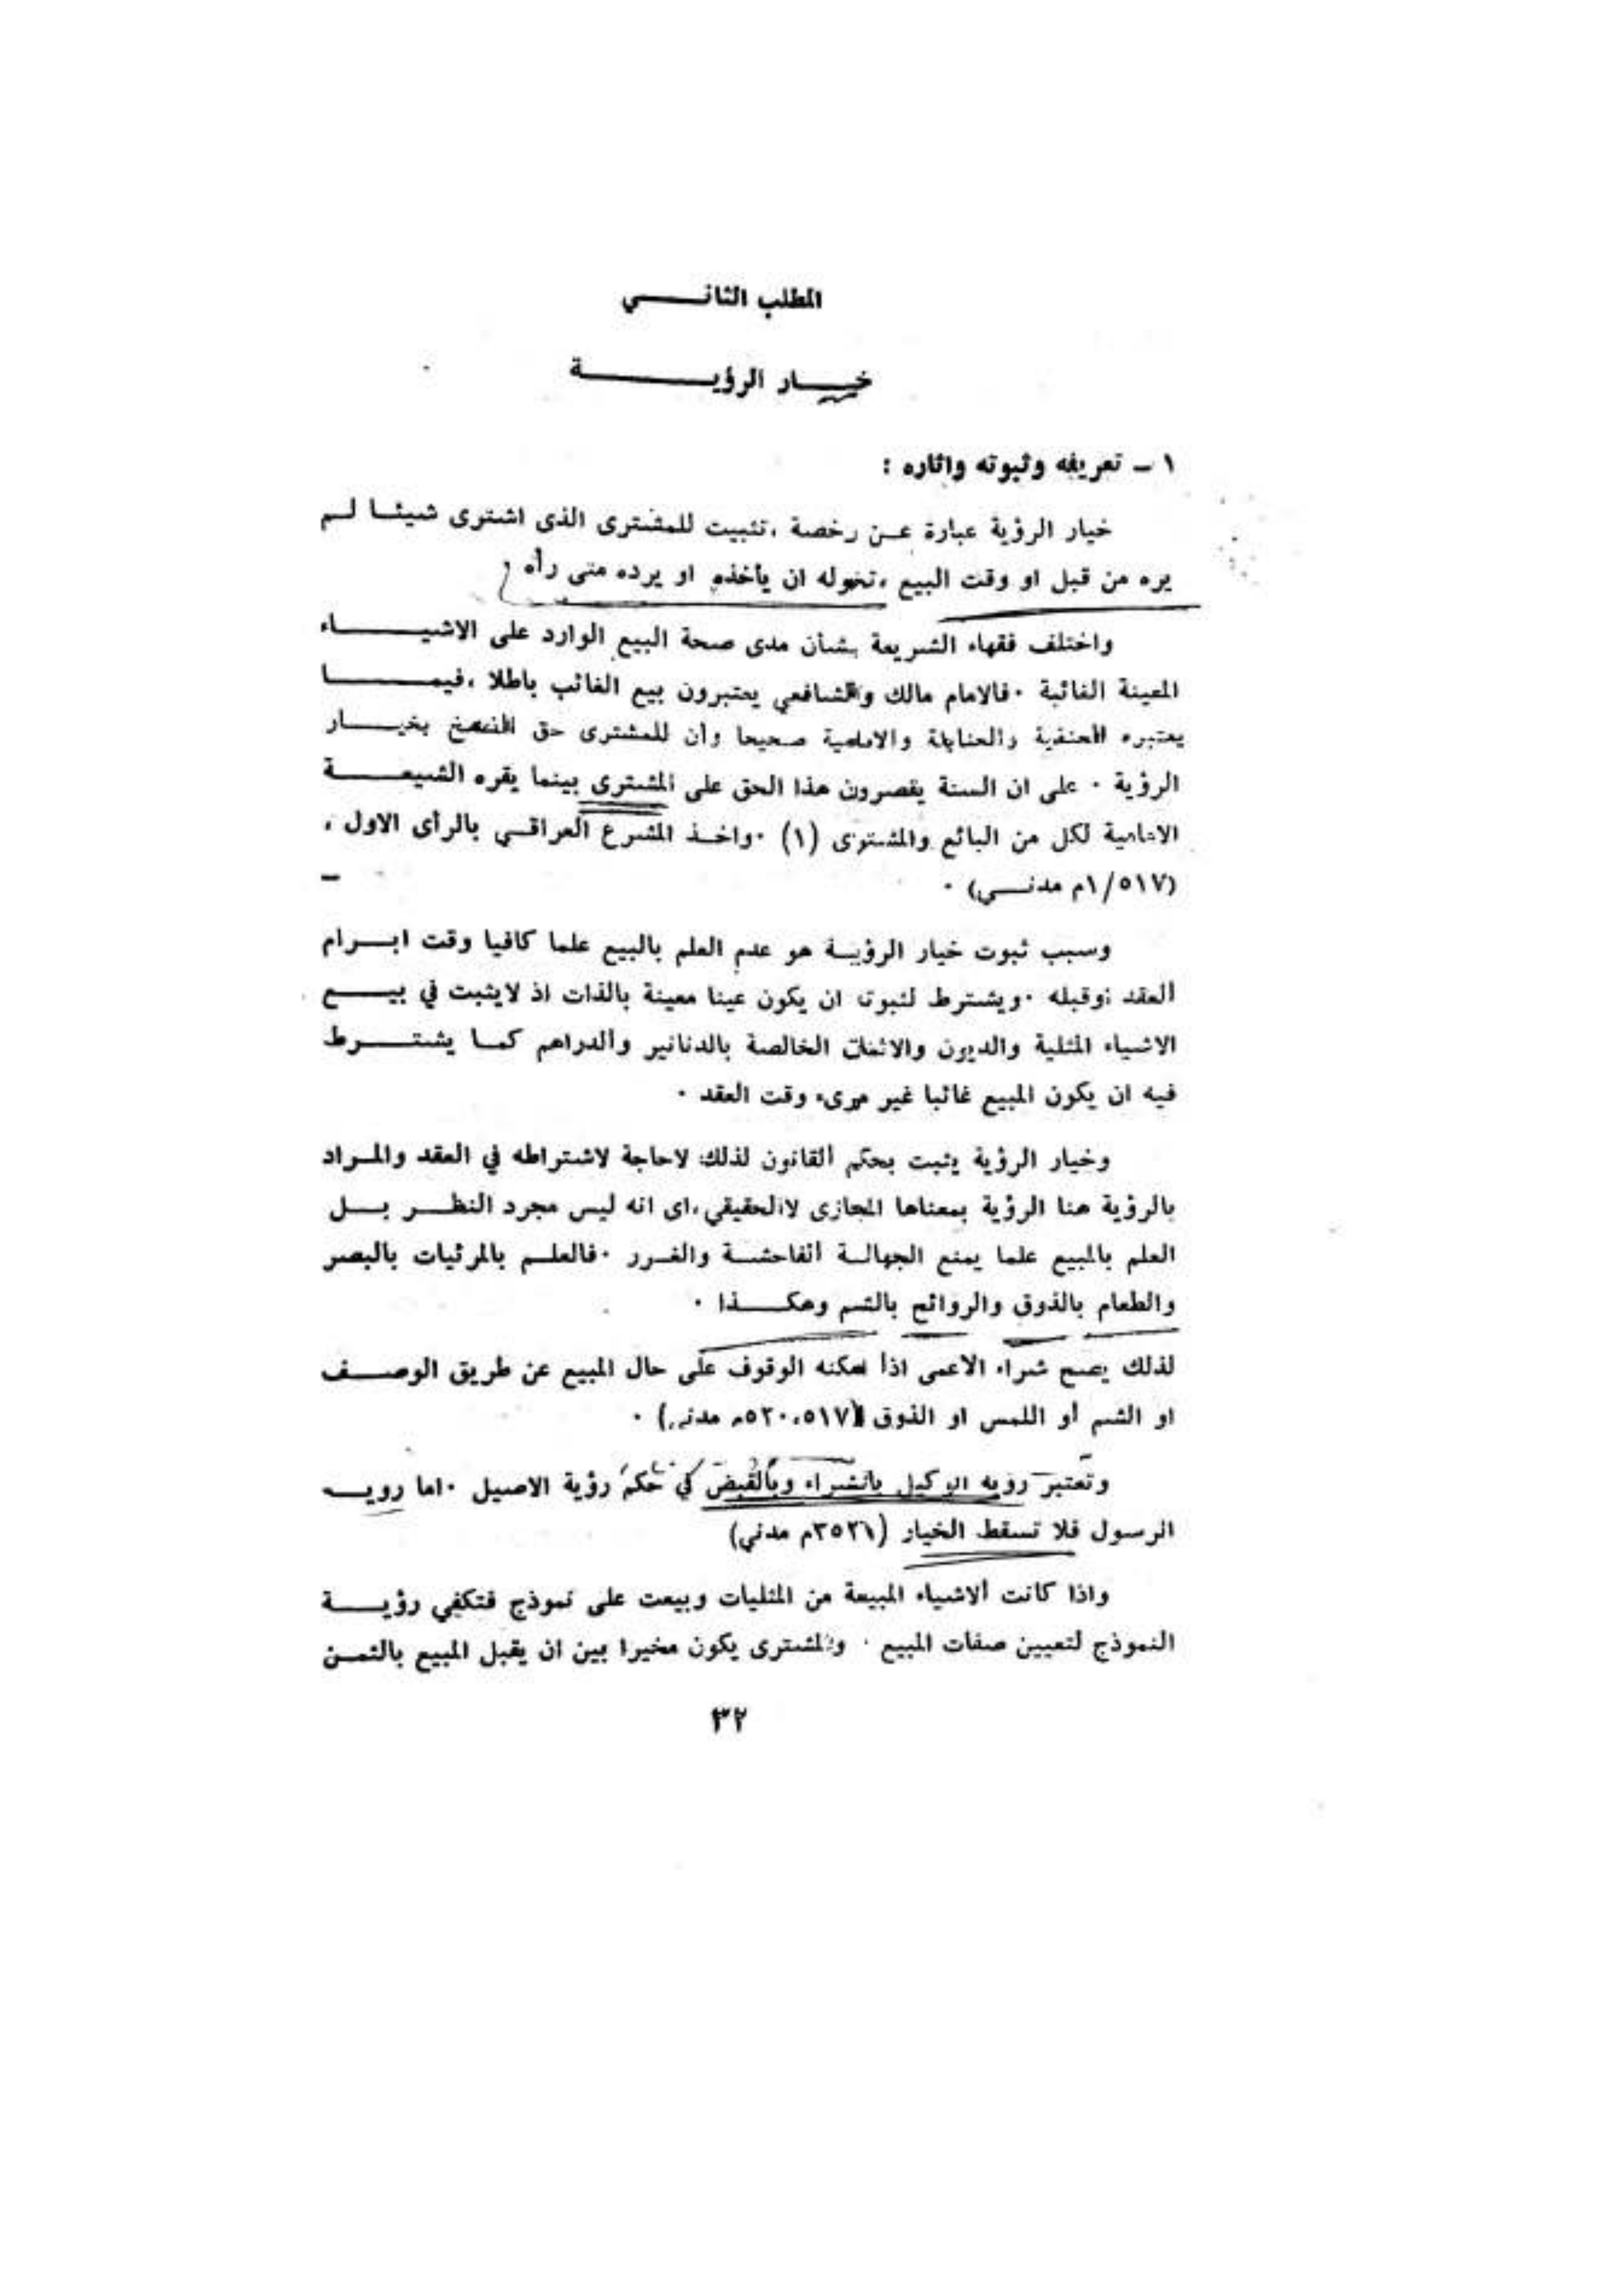 المطلب الثاني
خيار الرؤية
١ ـ تعريفه وثبوته واثاره :
خيار الرؤية عبارة عن رخصة ، تثبيت للمشترى الذى اشترى شيئا لم
يره من قبل او وقت البيع ، تخوله ان يأخذه او يرده متى رأه
واختلف فقهاء الشريعة بشأن مدى صحة البيع الوارد على الاشياء
المعينة الغائبة ٠ فالامام مالك والشافعي يعتبرون بيع الغائب باطلا ، فيما
يعتبره الحنفية والحنابلة والامامية صحيحا وأن للمشترى حق الفسخ بخيار
الرؤية ٠ على ان السنة يقصرون هذا الحق على المشترى بينما يقره الشيعة
الامامية لكل من البائع والمشترى (١) ٠ واخذ المشرع العراقي بالرأى الاول ،
(١/٥١٧م مدني) ٠
وسبب ثبوت خيار الرؤية هو عدم العلم بالبيع علما كافيا وقت ابرام
العقد اوقبله ٠ ويشترط لثبوته ان يكون عينا معينة بالذات اذ لايثبت في بيع
الاشياء المثلية والديون والاثمان الخالصة بالدنانير والدراهم كما يشترط
فيه ان يكون المبيع غائبا غير مرىء وقت العقد ٠
وخيار الرؤية يثبت بحكم القانون لذلك لاحاجة لاشتراطه في العقد والمراد
بالرؤية هنا الرؤية بمعناها المجازى لاالحقيقي ، اى انه ليس مجرد النظر بل
العلم بالمبيع علما يمنع الجهالة الفاحشة والغرر ٠ فالعلم بالمرئيات بالبصر
والطعام بالذوق والروائح بالشم وهكذا ٠
لذلك يصح شراء الاعمى اذا امكنه الوقوف على حال المبيع عن طريق الوصف
او الشم أو اللمس او الذوق (٥١٧،٥٢٠م مدني) ٠
وتعتبر رؤية الوكيل بالشراء وبالقبض في حكم رؤية الاصيل ٠ اما رويه
الرسول فلا تسقط الخيار (م مدني)
واذا كانت الاشياء المبيعة من المثليات وبيعت على نموذج فتكفي رؤية
النموذج لتعيين صفات المبيع ٠ والمشترى يكون مخيرا بين ان يقبل المبيع بالثمن
٣٢